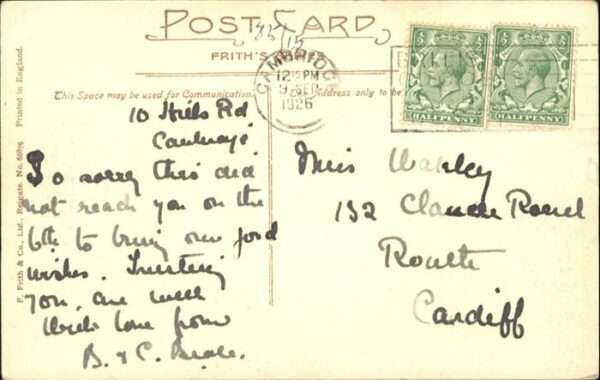 POST CARD
FRITH'S
CAMBRIDGE
12 15 PM
9 SEP
1926
HALFPENNY
HALFPENNY
This Space may be used for Communication.
Address only to be
Printed in England.
F. Frith & Co., Ltd., Reigate. No.
10 Hills Rd
Cambridge
So sorry this did
not reach you on the
6th to bring our good
wishes. Trusting
you are well
With love from
B. & C.
Miss Wakley
132 Claude Road
Roath
Cardiff